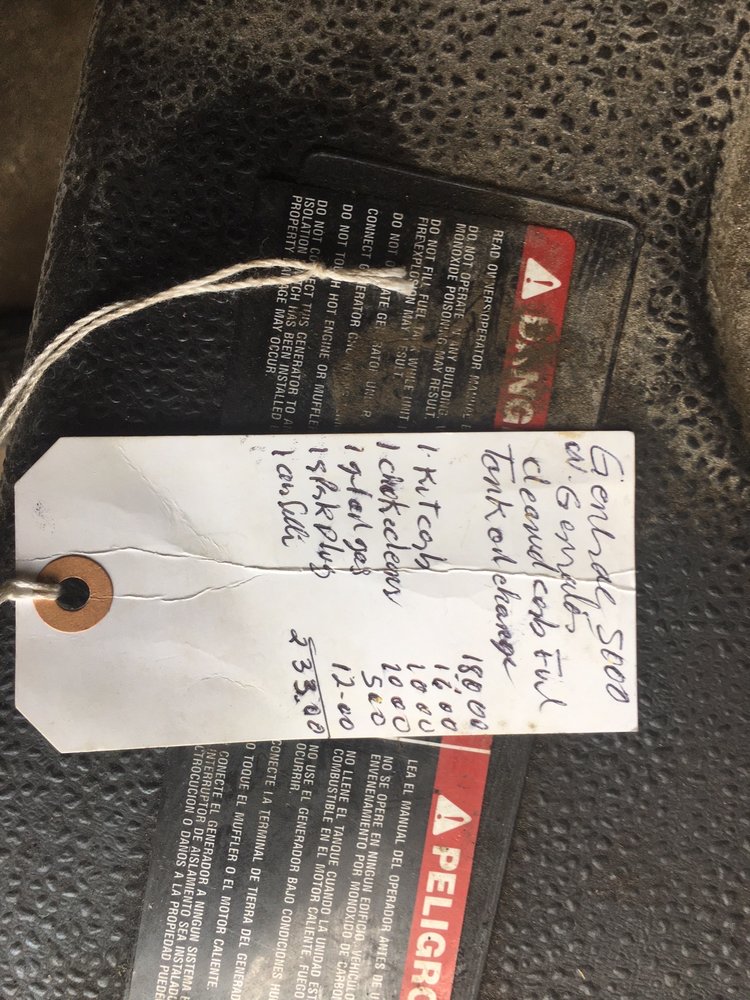 DANG
READ OWNERS/OPERATOR MANUAL
DO NOT OPERATE IN ANY BUILDING,
MONOXIDE POISONING MAY RESULT.
DO NOT FILL FUEL TANK WHILE UNIT
FIRE/EXPLOSION MAY RESULT.
DO NOT OPERATE GENERATOR UNDER
CONNECT GENERATOR
DO NOT TOUCH HOT ENGINE OR MUFFLE
DO NOT CONNECT THIS GENERATOR TO A
ISOLATION SWITCH HAS BEEN INSTALLED
PROPERTY DAMAGE MAY OCCUR.
5000
cleaned carb + ful
Tank oil change
180.00
1 Kit carb 16.00
1 choke cleaner 10.00
20.00
1 spark plug 5.00
12.00
233.00
PELIGRO
LEA EL MANUAL DEL OPERADOR ANTES DE
NO SE OPERE EN NINGUN EDIFICIO, VEHICUL
ENVENENAMIENTO POR MONOXICO DE CARBO
NO LLENE EL TANQUE CUANDO LA UNIDAD ES
COMBUSTIBLE EN EL MOTOR CALIENTE. FUEGO
NO USE EL GENERADOR BAJO CONDICIONES HU
OCURRIR.
CONECTE LA TERMINAL DE TIERRA DEL GENERA
O TOQUE EL MUFFLER O EL MOTOR CALIENTE.
CONECTE EL GENERADOR A NINGUN SISTEMA
INTERRUPTOR DE AISLAMIENTO SEA INSTALAD
CTROCUCION O DAÑOS A LA PROPIEDAD PUEDE